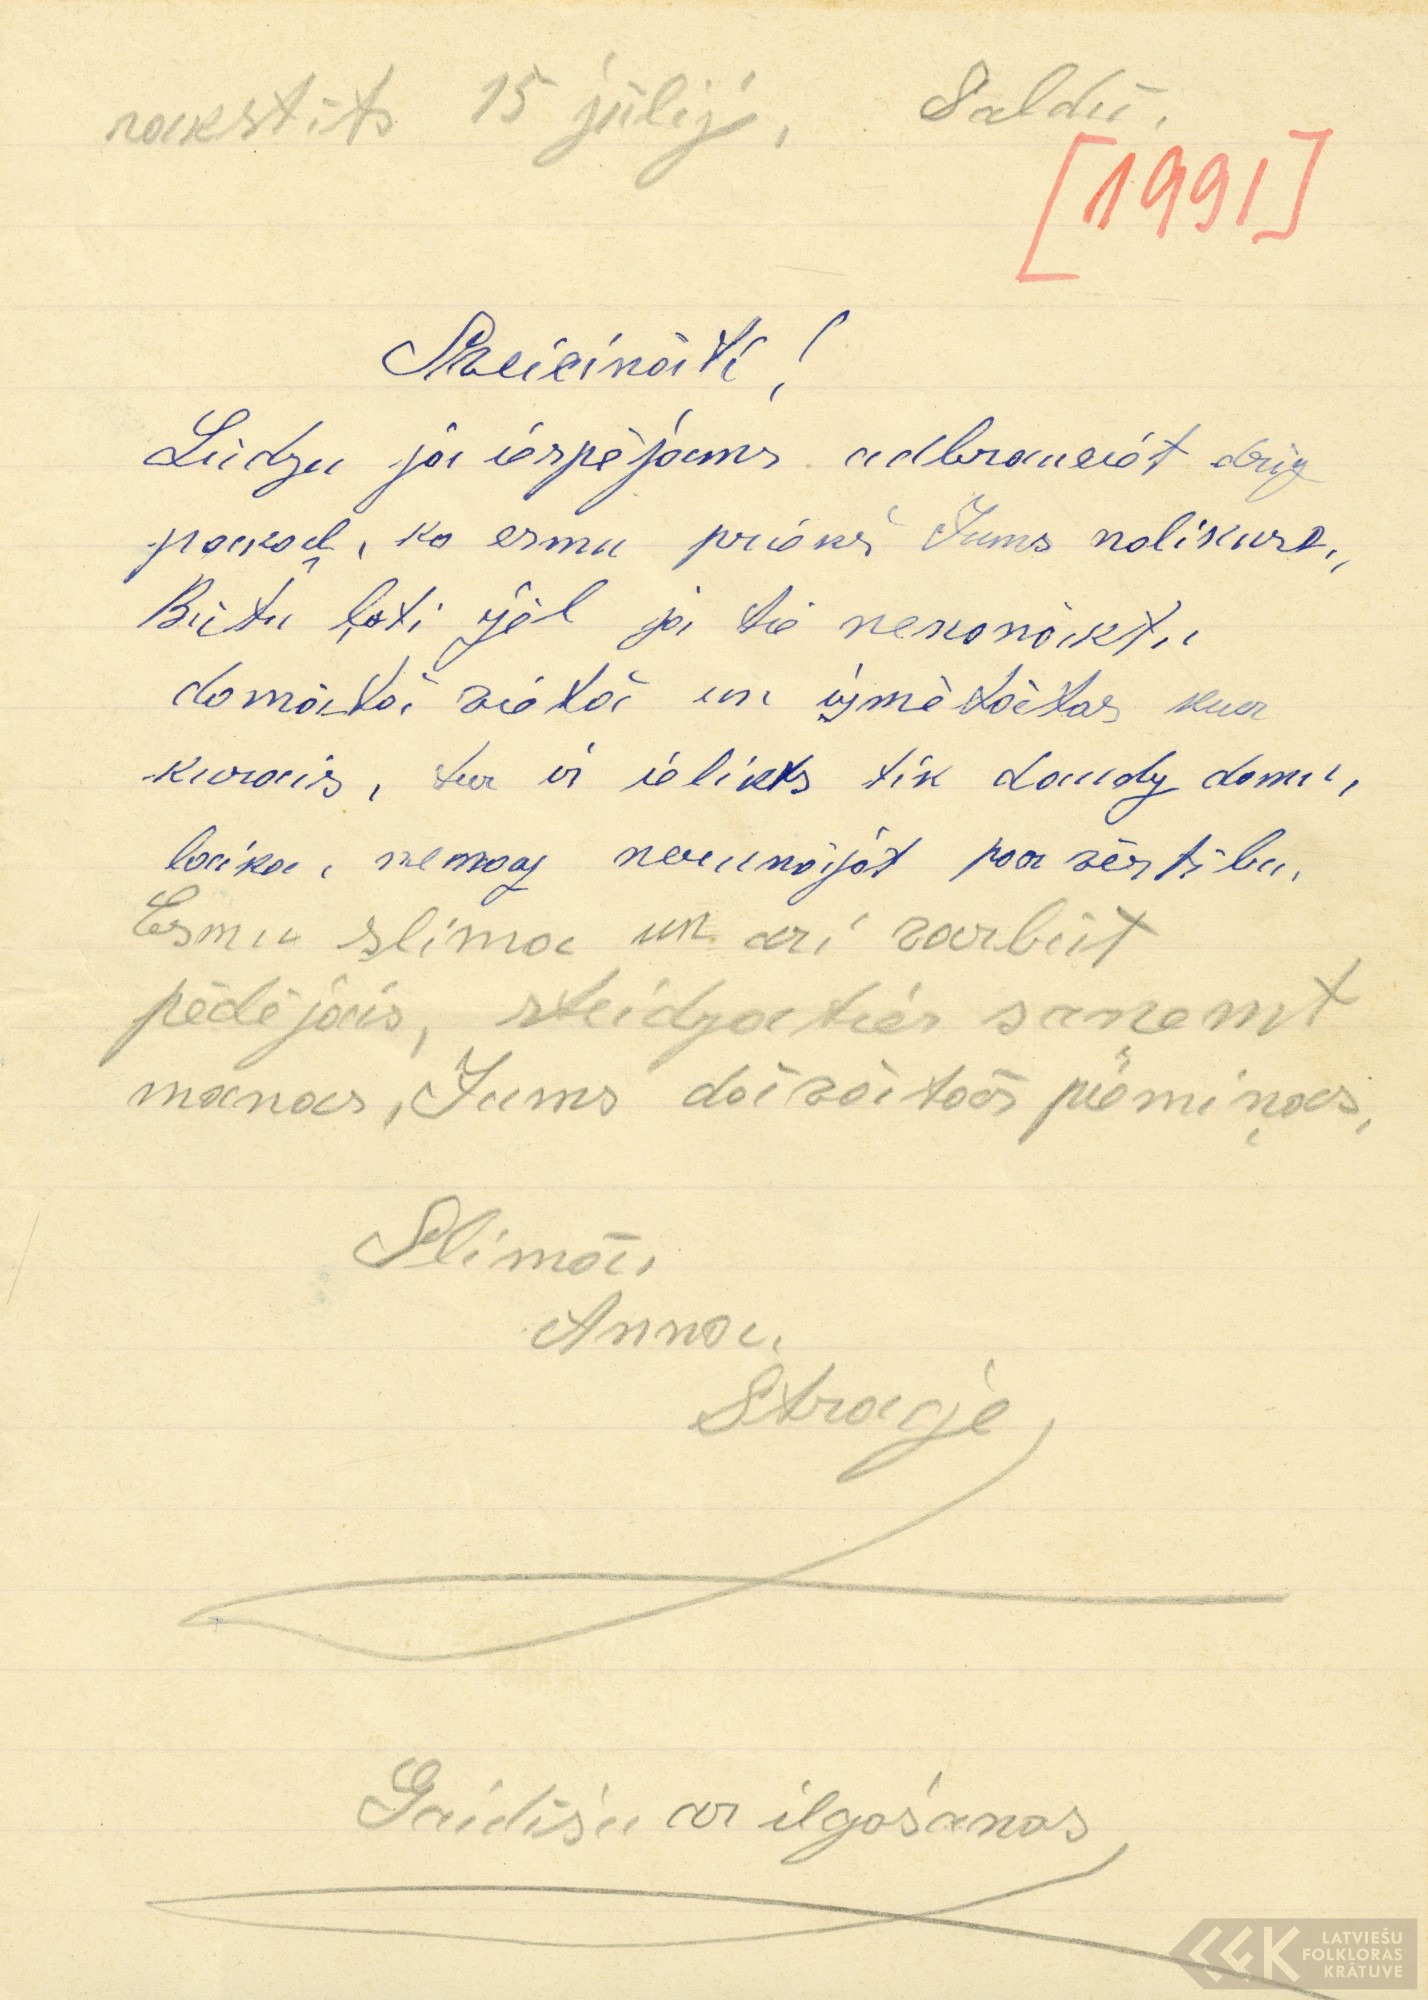 rakstīts 15 jūlijj, Saldū.
[1991]
Sveicināti!
Lūdzu ja iespējams adbrauciat drīz
pakaļ, ko esmu priekš Jums nolikusa,
Būtu ļoti žēl ja tie nenonāktu
domātā vietā un izmētātas kur
kurais, tur ir ielikts tik daudz domu,
laika, nemaz nerunājot par vērtību.
Esmu slima un arī varbūt
pēdējais, steidzaties saņemt
manas, Jums dāvātās piemiņas,
Slimā,
Anna.
Strazde
Gaidīšu ar ilgošanos
LATVIEŠU
FOLKLORAS
KRĀTUVE